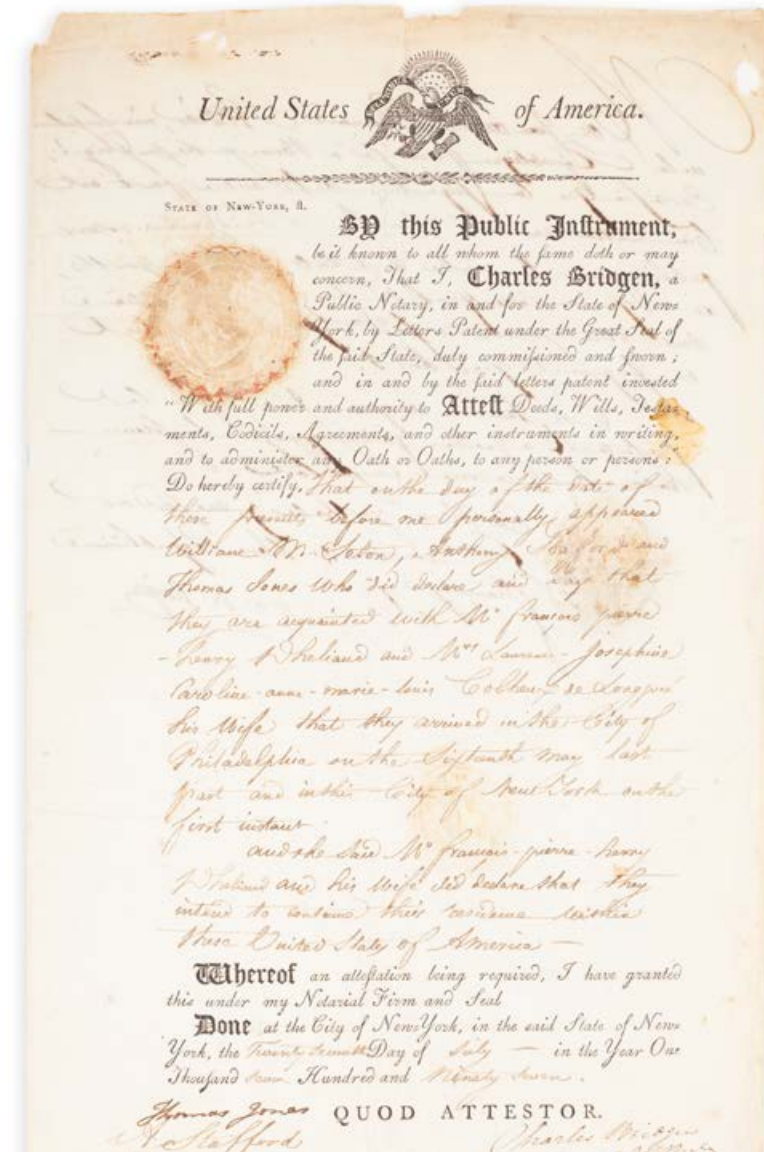 United States of America.
STATE OF NEW-YORK, ſſ.
BY this Public Inſtrument,
be it known to all whom the ſame doth or may
concern, That I, Charles Bridgen, a
Public Notary, in and for the State of New-
York, by Letters Patent under the Great Seal of
the ſaid State, duly commiſſioned and ſworn;
and in and by the ſaid letters patent inveſted
"With full power and authority to Atteſt Deeds, Wills, Teſta-
ments, Codicils, Agreements, and other inſtruments in writing,
and to adminiſter any Oath or Oaths, to any perſon or perſons:"
Do hereby certify, that on the day of the date of
these presents before me personally appeared
William Seton, Anthony and
Thomas Jones who did declare and say that
they are acquainted with Mr francois pierre
-henry and Mrs - Josephine
Caroline-anne-marie-louis de
his Wife that they arrived in the City of
Philadelphia on the Sixteenth may last
past and in this City of New York on the
first instant
and the Said Mr françois-pierre-henry
and his Wife did declare that They
intend to continue their residence within
these United States of America —
Whereof an atteſtation being required, I have granted
this under my Notarial Firm and Seal
Done at the City of New-York, in the said State of New-
York, the Twenty seventh Day of July — in the Year One
Thouſand seven Hundred and Ninety seven.
Thomas Jones QUOD ATTESTOR.
A Stafford Charles Bridgen